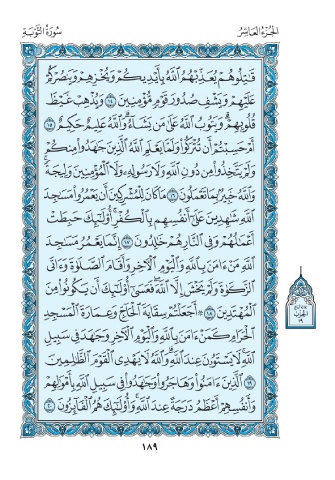 سُورَةُ التَّوْبَةِ
الجُزْءُ العَاشِرُ
قَٰتِلُوهُمْ يُعَذِّبْهُمُ ٱللَّهُ بِأَيْدِيكُمْ وَيُخْزِهِمْ وَيَنصُرْكُمْ
عَلَيْهِمْ وَيَشْفِ صُدُورَ قَوْمٍ مُّؤْمِنِينَ ١٤ وَيُذْهِبْ غَيْظَ
قُلُوبِهِمْ ۗ وَيَتُوبُ ٱللَّهُ عَلَىٰ مَن يَشَآءُ ۗ وَٱللَّهُ عَلِيمٌ حَكِيمٌ ١٥
أَمْ حَسِبْتُمْ أَن تُتْرَكُوا۟ وَلَمَّا يَعْلَمِ ٱللَّهُ ٱلَّذِينَ جَٰهَدُوا۟ مِنكُمْ
وَلَمْ يَتَّخِذُوا۟ مِن دُونِ ٱللَّهِ وَلَا رَسُولِهِۦ وَلَا ٱلْمُؤْمِنِينَ وَلِيجَةً ۚ
وَٱللَّهُ خَبِيرٌۢ بِمَا تَعْمَلُونَ ١٦ مَا كَانَ لِلْمُشْرِكِينَ أَن يَعْمُرُوا۟ مَسَٰجِدَ
ٱللَّهِ شَٰهِدِينَ عَلَىٰٓ أَنفُسِهِم بِٱلْكُفْرِ ۚ أُو۟لَٰٓئِكَ حَبِطَتْ
أَعْمَٰلُهُمْ وَفِى ٱلنَّارِ هُمْ خَٰلِدُونَ ١٧ إِنَّمَا يَعْمُرُ مَسَٰجِدَ
ٱللَّهِ مَنْ ءَامَنَ بِٱللَّهِ وَٱلْيَوْمِ ٱلْءَاخِرِ وَأَقَامَ ٱلصَّلَوٰةَ وَءَاتَى
ٱلزَّكَوٰةَ وَلَمْ يَخْشَ إِلَّا ٱللَّهَ ۖ فَعَسَىٰٓ أُو۟لَٰٓئِكَ أَن يَكُونُوا۟ مِنَ
ٱلْمُهْتَدِينَ ١٨ ۞ أَجَعَلْتُمْ سِقَايَةَ ٱلْحَآجِّ وَعِمَارَةَ ٱلْمَسْجِدِ
ٱلْحَرَامِ كَمَنْ ءَامَنَ بِٱللَّهِ وَٱلْيَوْمِ ٱلْءَاخِرِ وَجَٰهَدَ فِى سَبِيلِ
ٱللَّهِ ۚ لَا يَسْتَوُۥنَ عِندَ ٱللَّهِ ۗ وَٱللَّهُ لَا يَهْدِى ٱلْقَوْمَ ٱلظَّٰلِمِينَ
١٩ ٱلَّذِينَ ءَامَنُوا۟ وَهَاجَرُوا۟ وَجَٰهَدُوا۟ فِى سَبِيلِ ٱللَّهِ بِأَمْوَٰلِهِمْ
وَأَنفُسِهِمْ أَعْظَمُ دَرَجَةً عِندَ ٱللَّهِ ۚ وَأُو۟لَٰٓئِكَ هُمُ ٱلْفَآئِزُونَ ٢٠
١٨٩